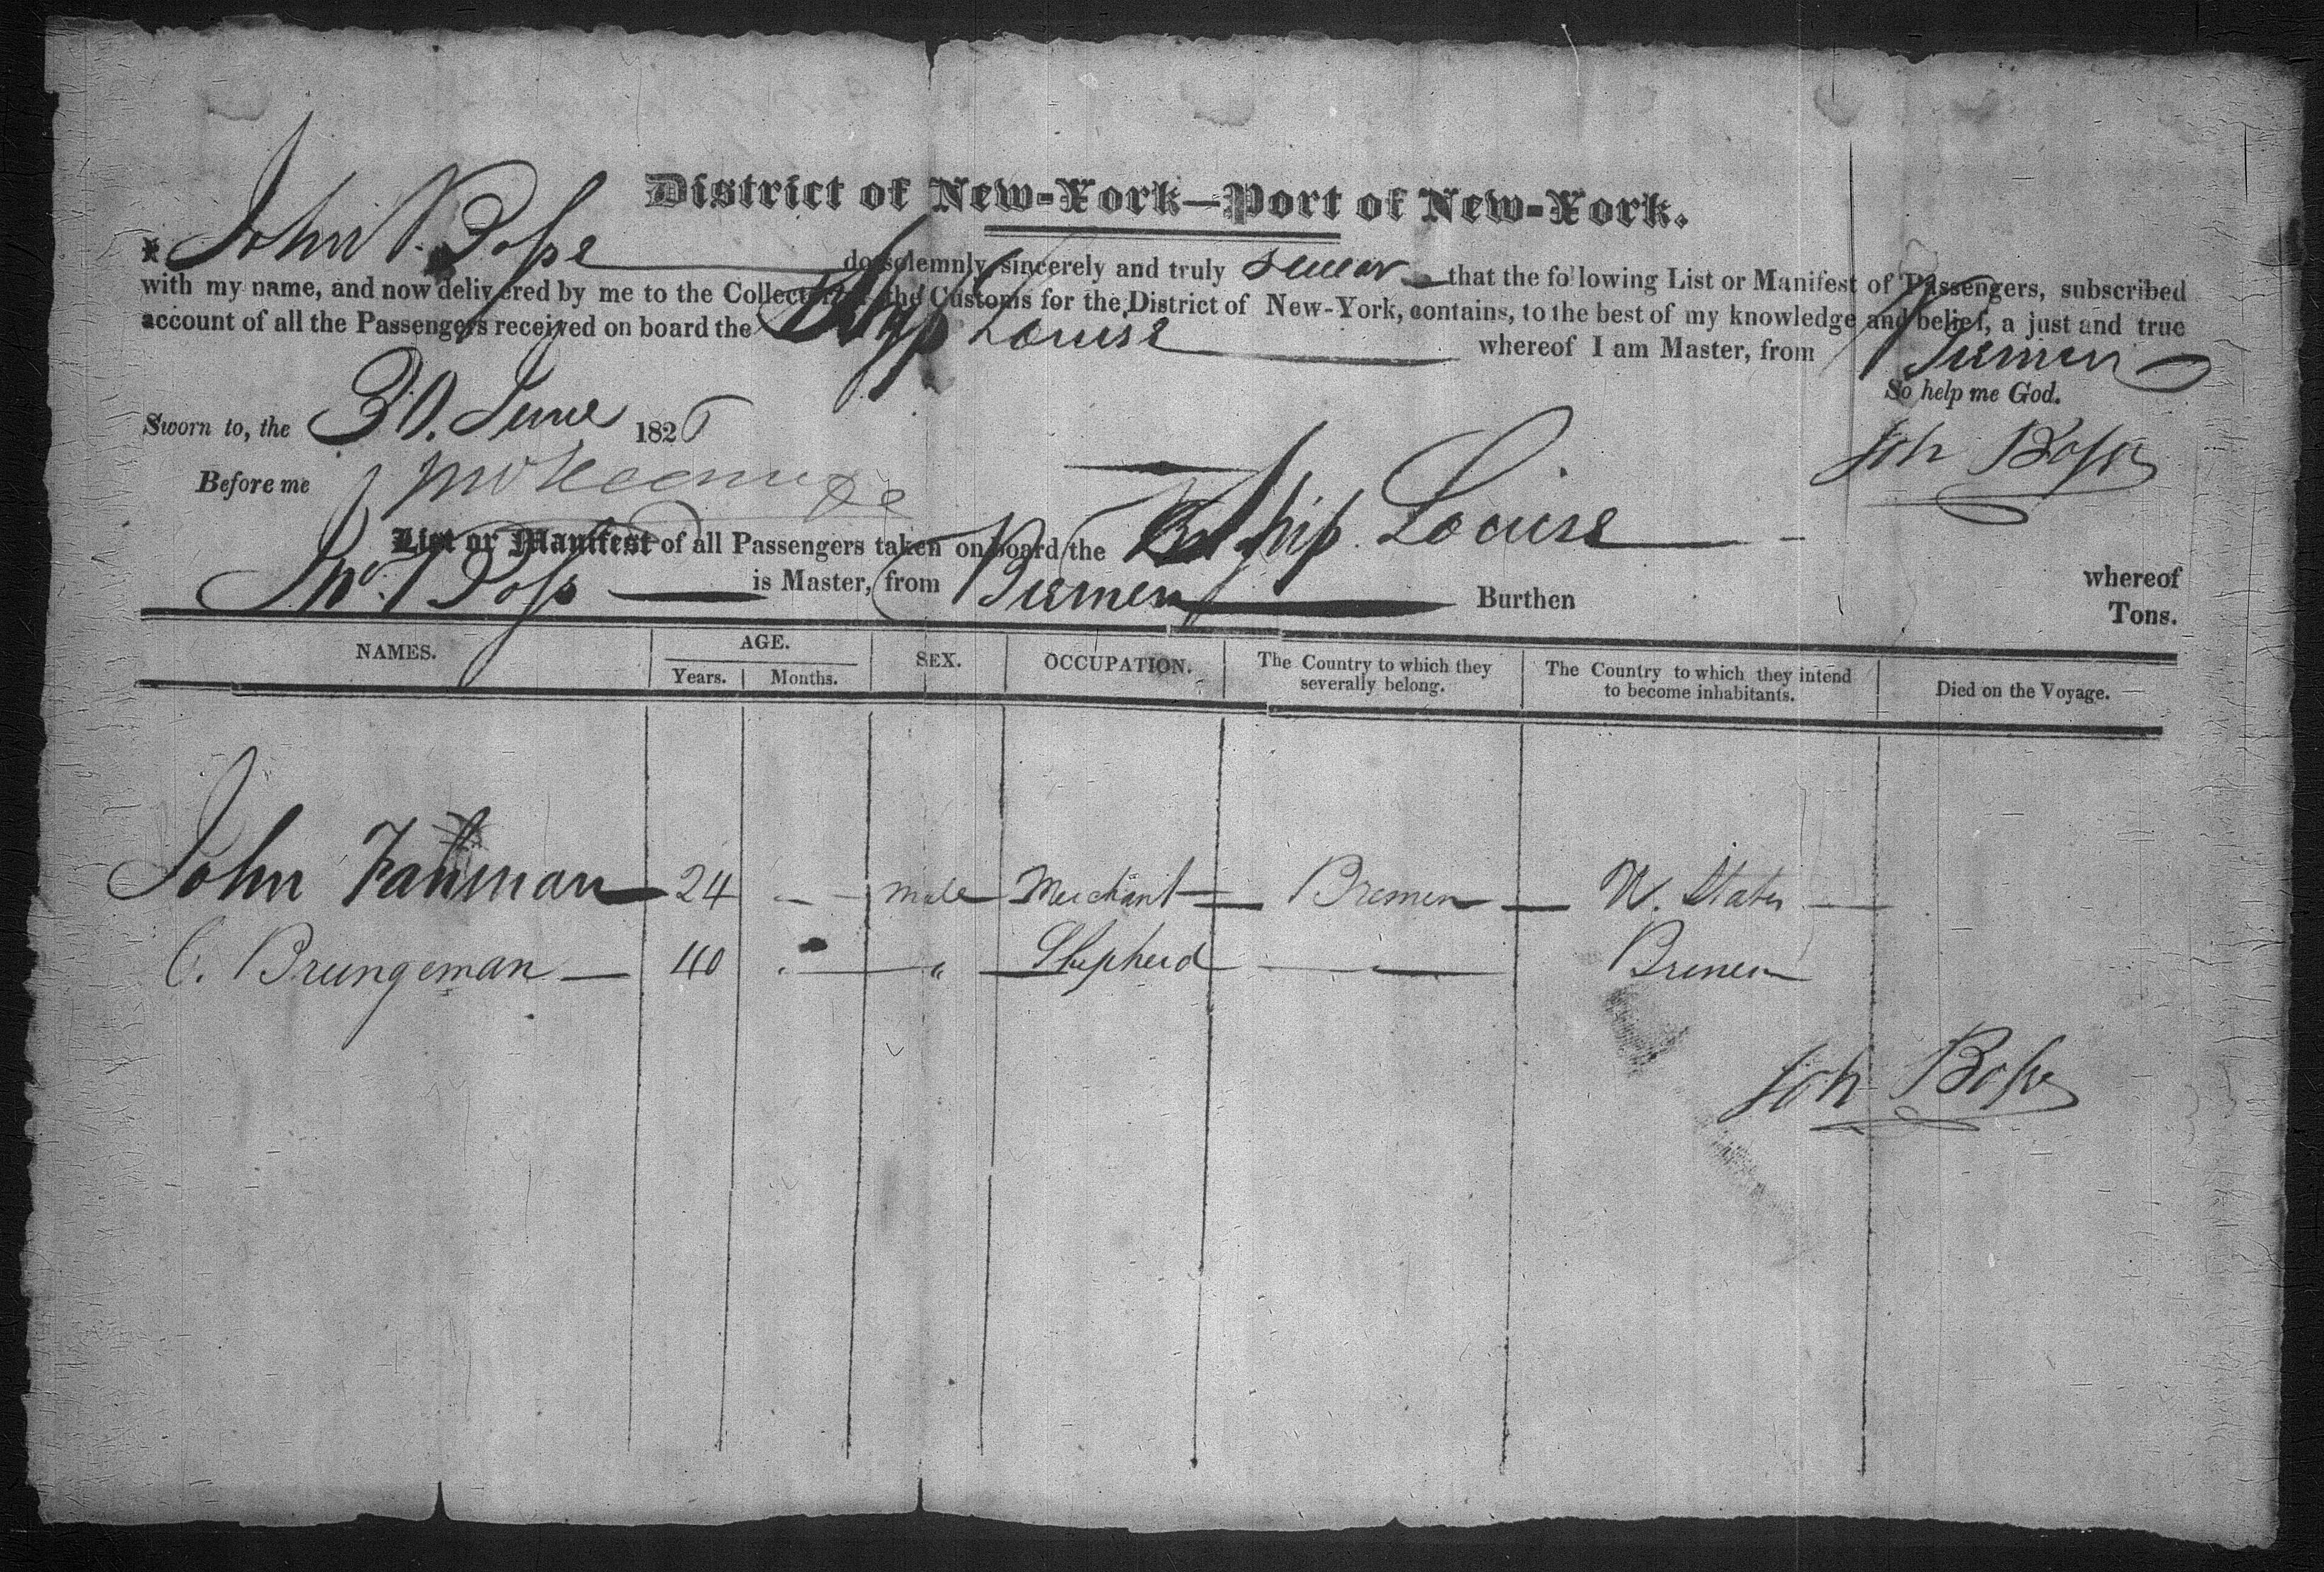 District of New-York—Port of New-York.
I, John Bosse do solemnly, sincerely and truly swear that the following List or Manifest of Passengers, subscribed
with my name, and now delivered by me to the Collector of the Customs for the District of New-York, contains, to the best of my knowledge and belief, a just and true
account of all the Passengers received on board the Ship Louise whereof I am Master, from Bremen
So help me God.
Sworn to, the 30. June 1826
Joh Bosse
Before me
List or Manifest of all Passengers taken on board the Ship Louise whereof
Jno. Bosse is Master, from Bremen Burthen Tons.
NAMES. AGE. SEX. OCCUPATION. The Country to which they severally belong. The Country to which they intend to become inhabitants. Died on the Voyage.
Years. Months.
John Fahman 24 — — male Merchant Bremen U. States
C. Brungeman 40 " Shepherd — Bremen
Joh Bosse